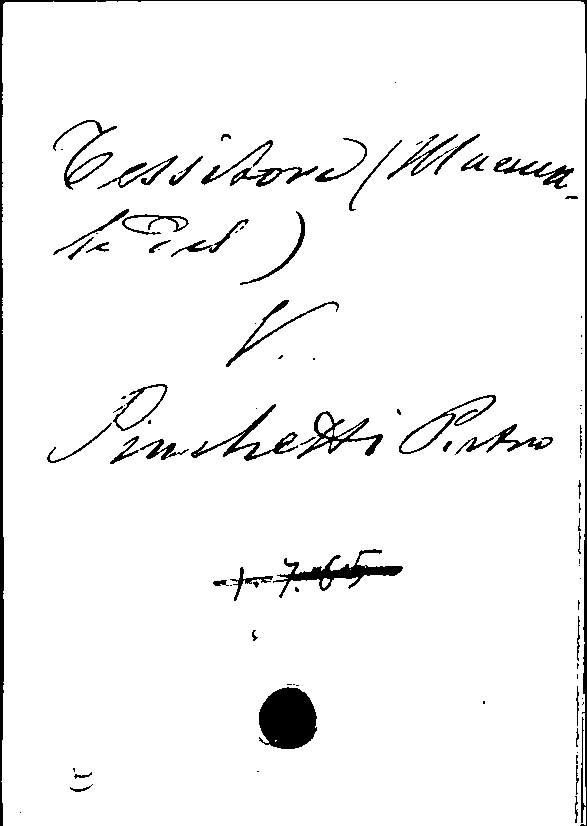 Tessitore (Manua-
le del)
V.
Pinchetti Pietro
1.7.65